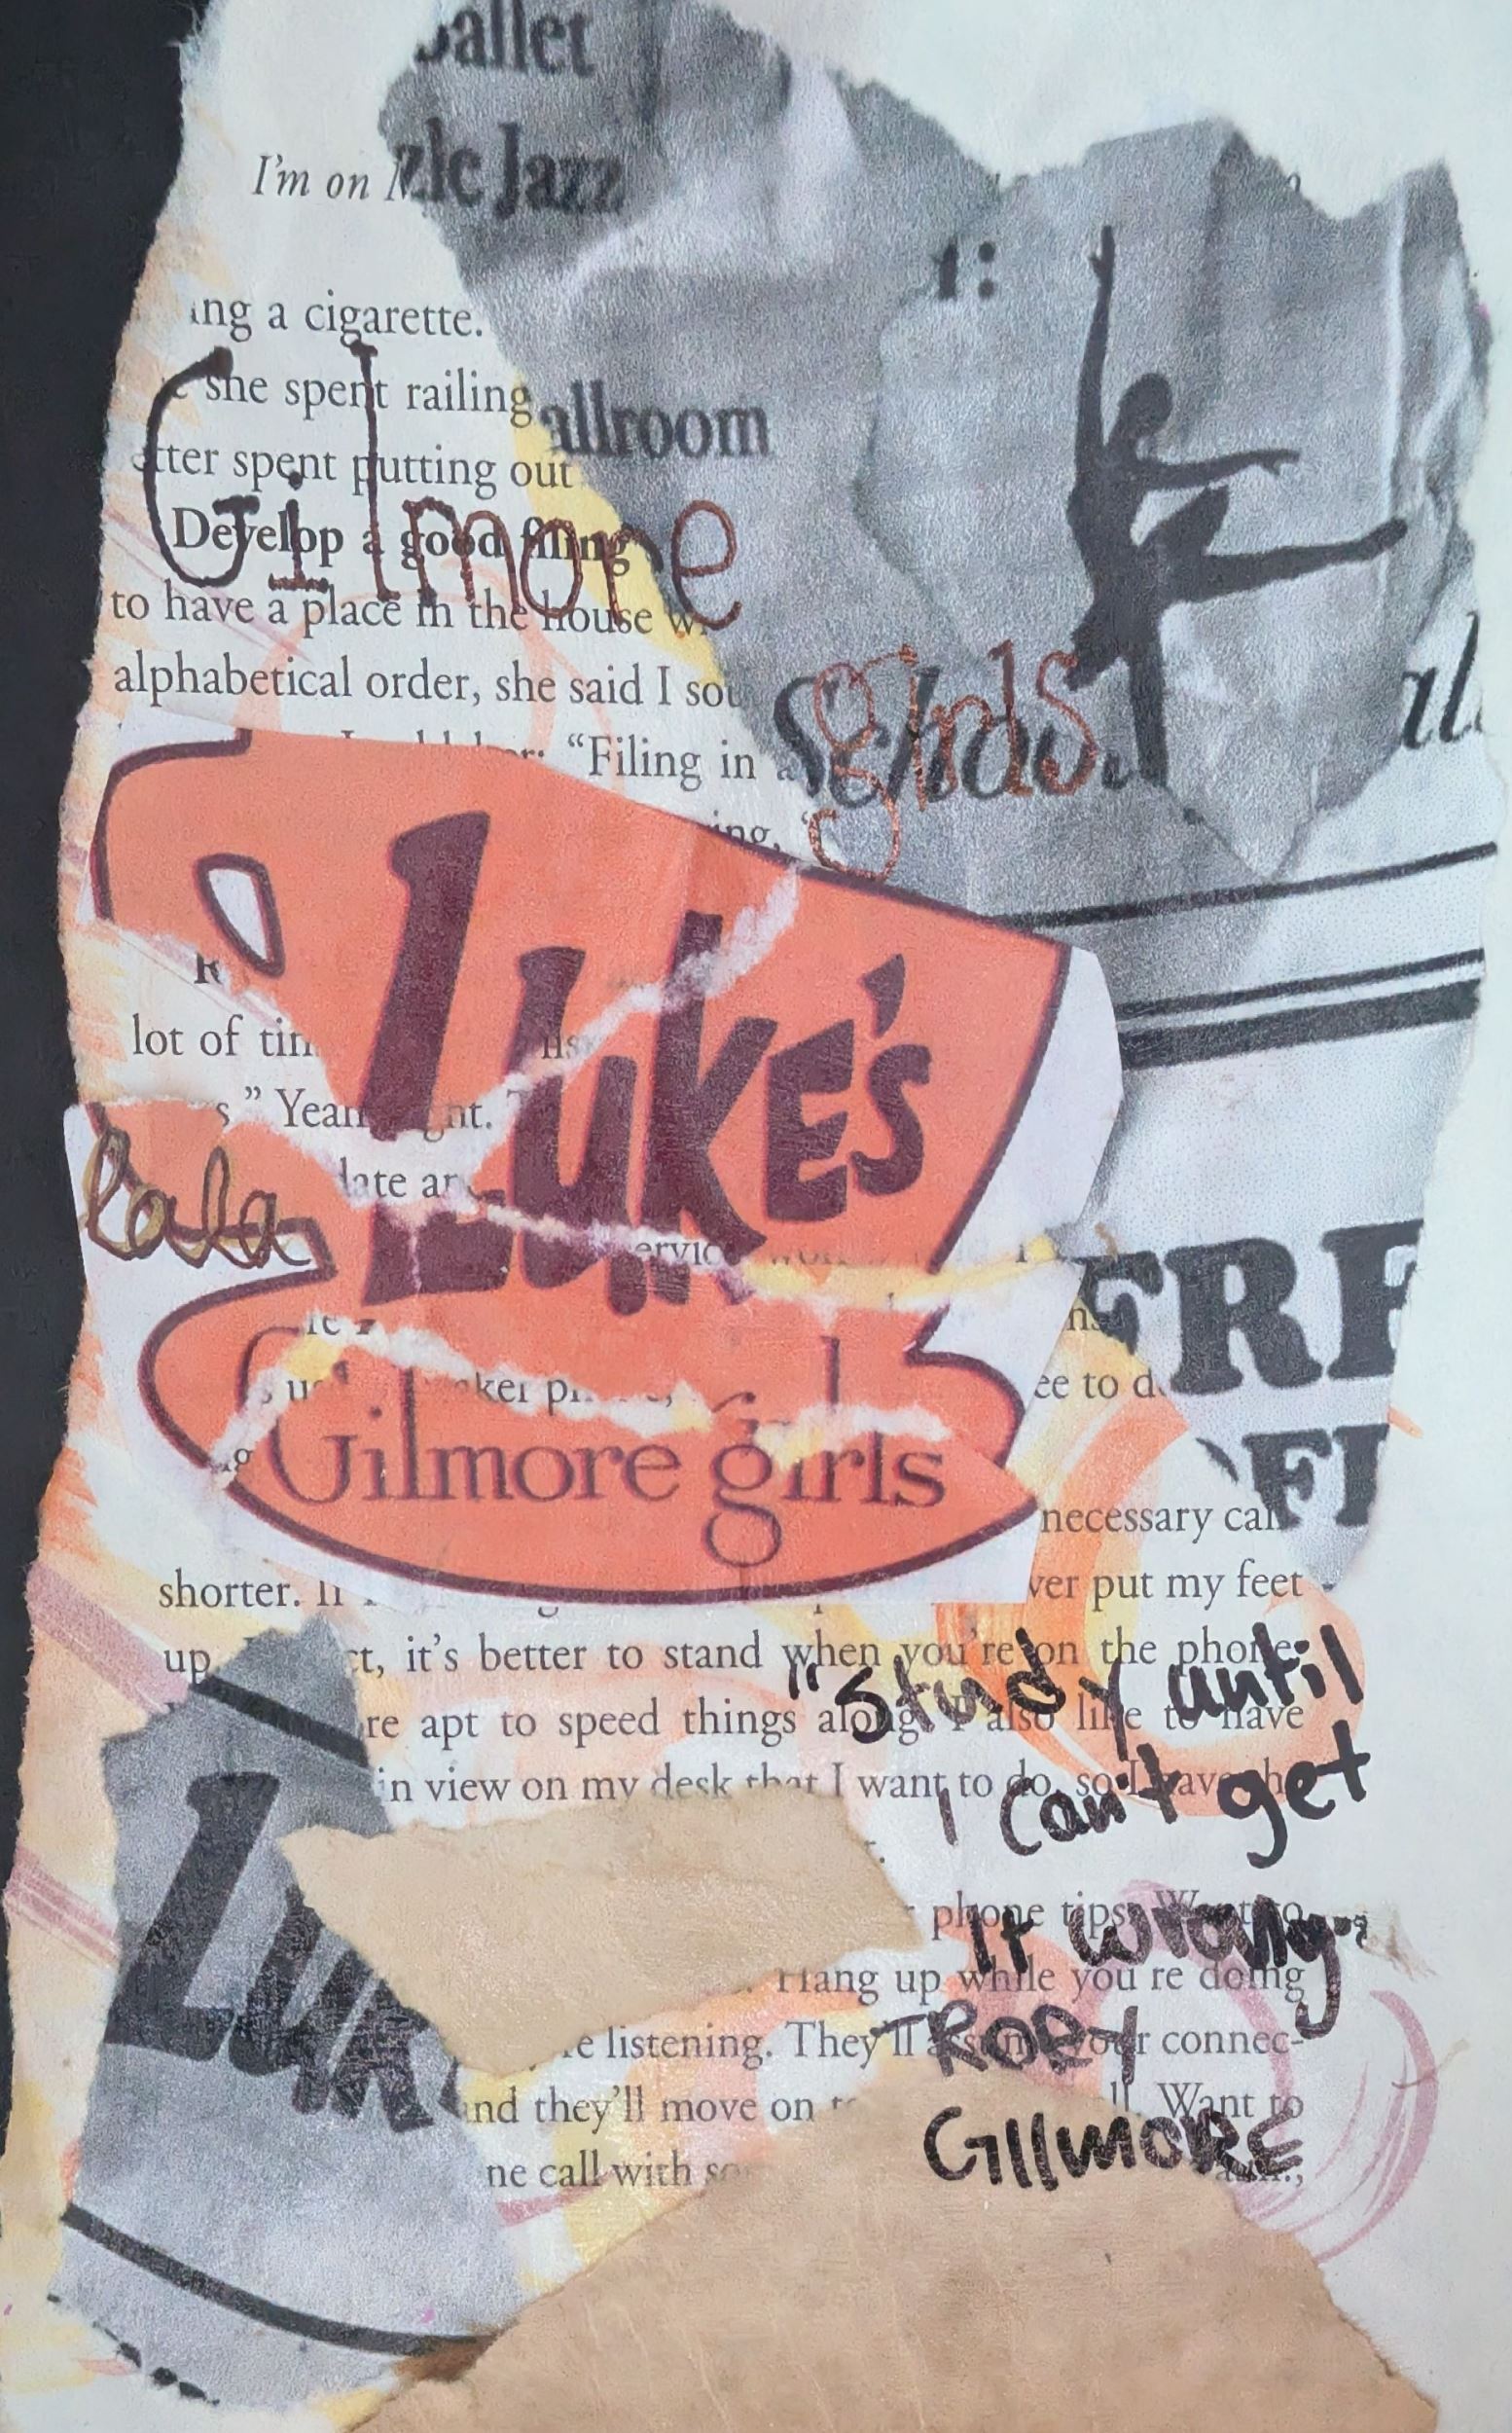 ballet
I'm on
zic Jazz
1:
ing a cigarette.
she spent railing
allroom
tter spent putting out
Gilmore
Develop a good filing
to have a place in the house
alphabetical order, she said I
girls
al
"Filing in
ing,
Luke's
lot of
s." Yeah
late
lala
FRE
ee to
Gilmore girls
FI
necessary
shorter.
ver put my feet
up. ct, it's better to stand when you're on the phone.
"Study until
re apt to speed things along. I also like to have
in view on my desk that I want to do, so I have
I can't get
phone tips. Want to
It wrong."
Hang up while you're doing
Luk
e listening. They'll assume your connec-
-RORY
nd they'll move on
Want to
GIllMORE
ne call with